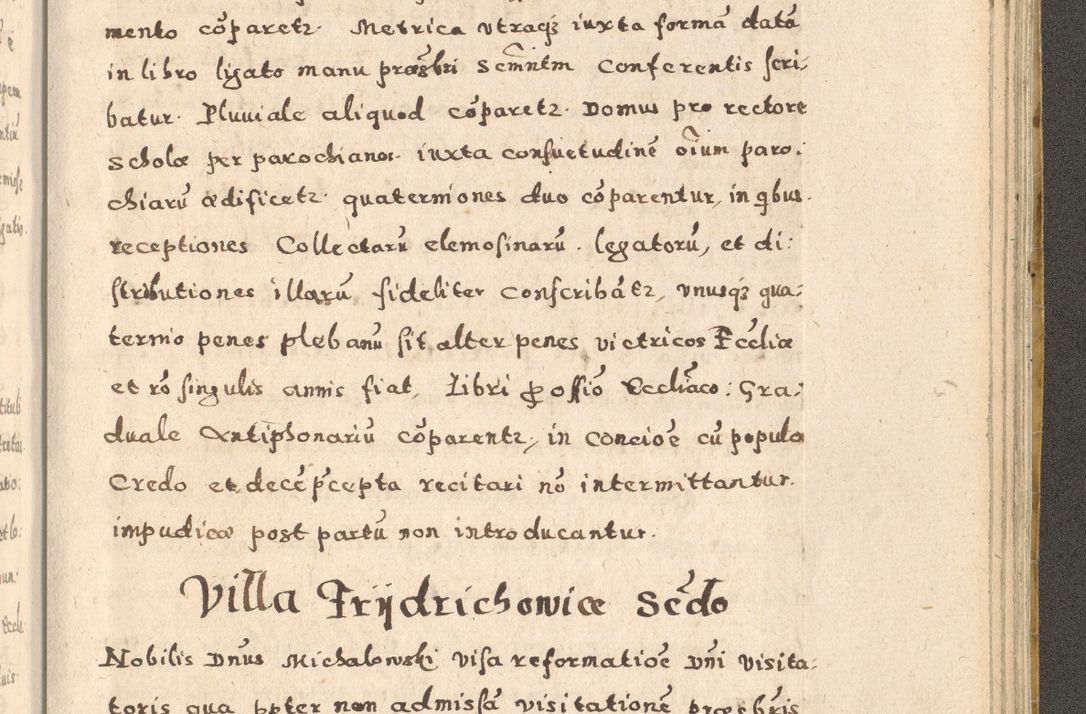 mento cōparetr. Metrica vtraqꝫ iuxta formā datā
in libro ligato manu præsb̄ri Sēmntm Conferentis scri-
batur. Pluuiale aliquod cōparetr. Domus pro rectore
Scholæ per parochianos. iuxta consuetudinē oīum paro:
chiarū ædificetr. quaterniones duo cōparentur, in qbus.
receptiones Collectarū elemosinarū. legatorū, et di:
stributiones illarū fideliter conscribātr, vnusqꝫ qua:
ternio penes plebanū sit alter penes vietricos Ecc̄liæ
et rō singulis annis fiat, Libri ꝓ offiō Eccliāco: Gra:
duale Antiphonariū cōparentr, in concioē cū populo
Credo et decē p̄cepta recitari nō intermittantur.
impudicæ post partū non introducantur.
Villa Frÿdrichowice Scd̄o
Nobilis Dn̄us Michalowski visa reformatioē Dn̄i visita:
toris qua ppter non admissā visitationē præsb̄ris